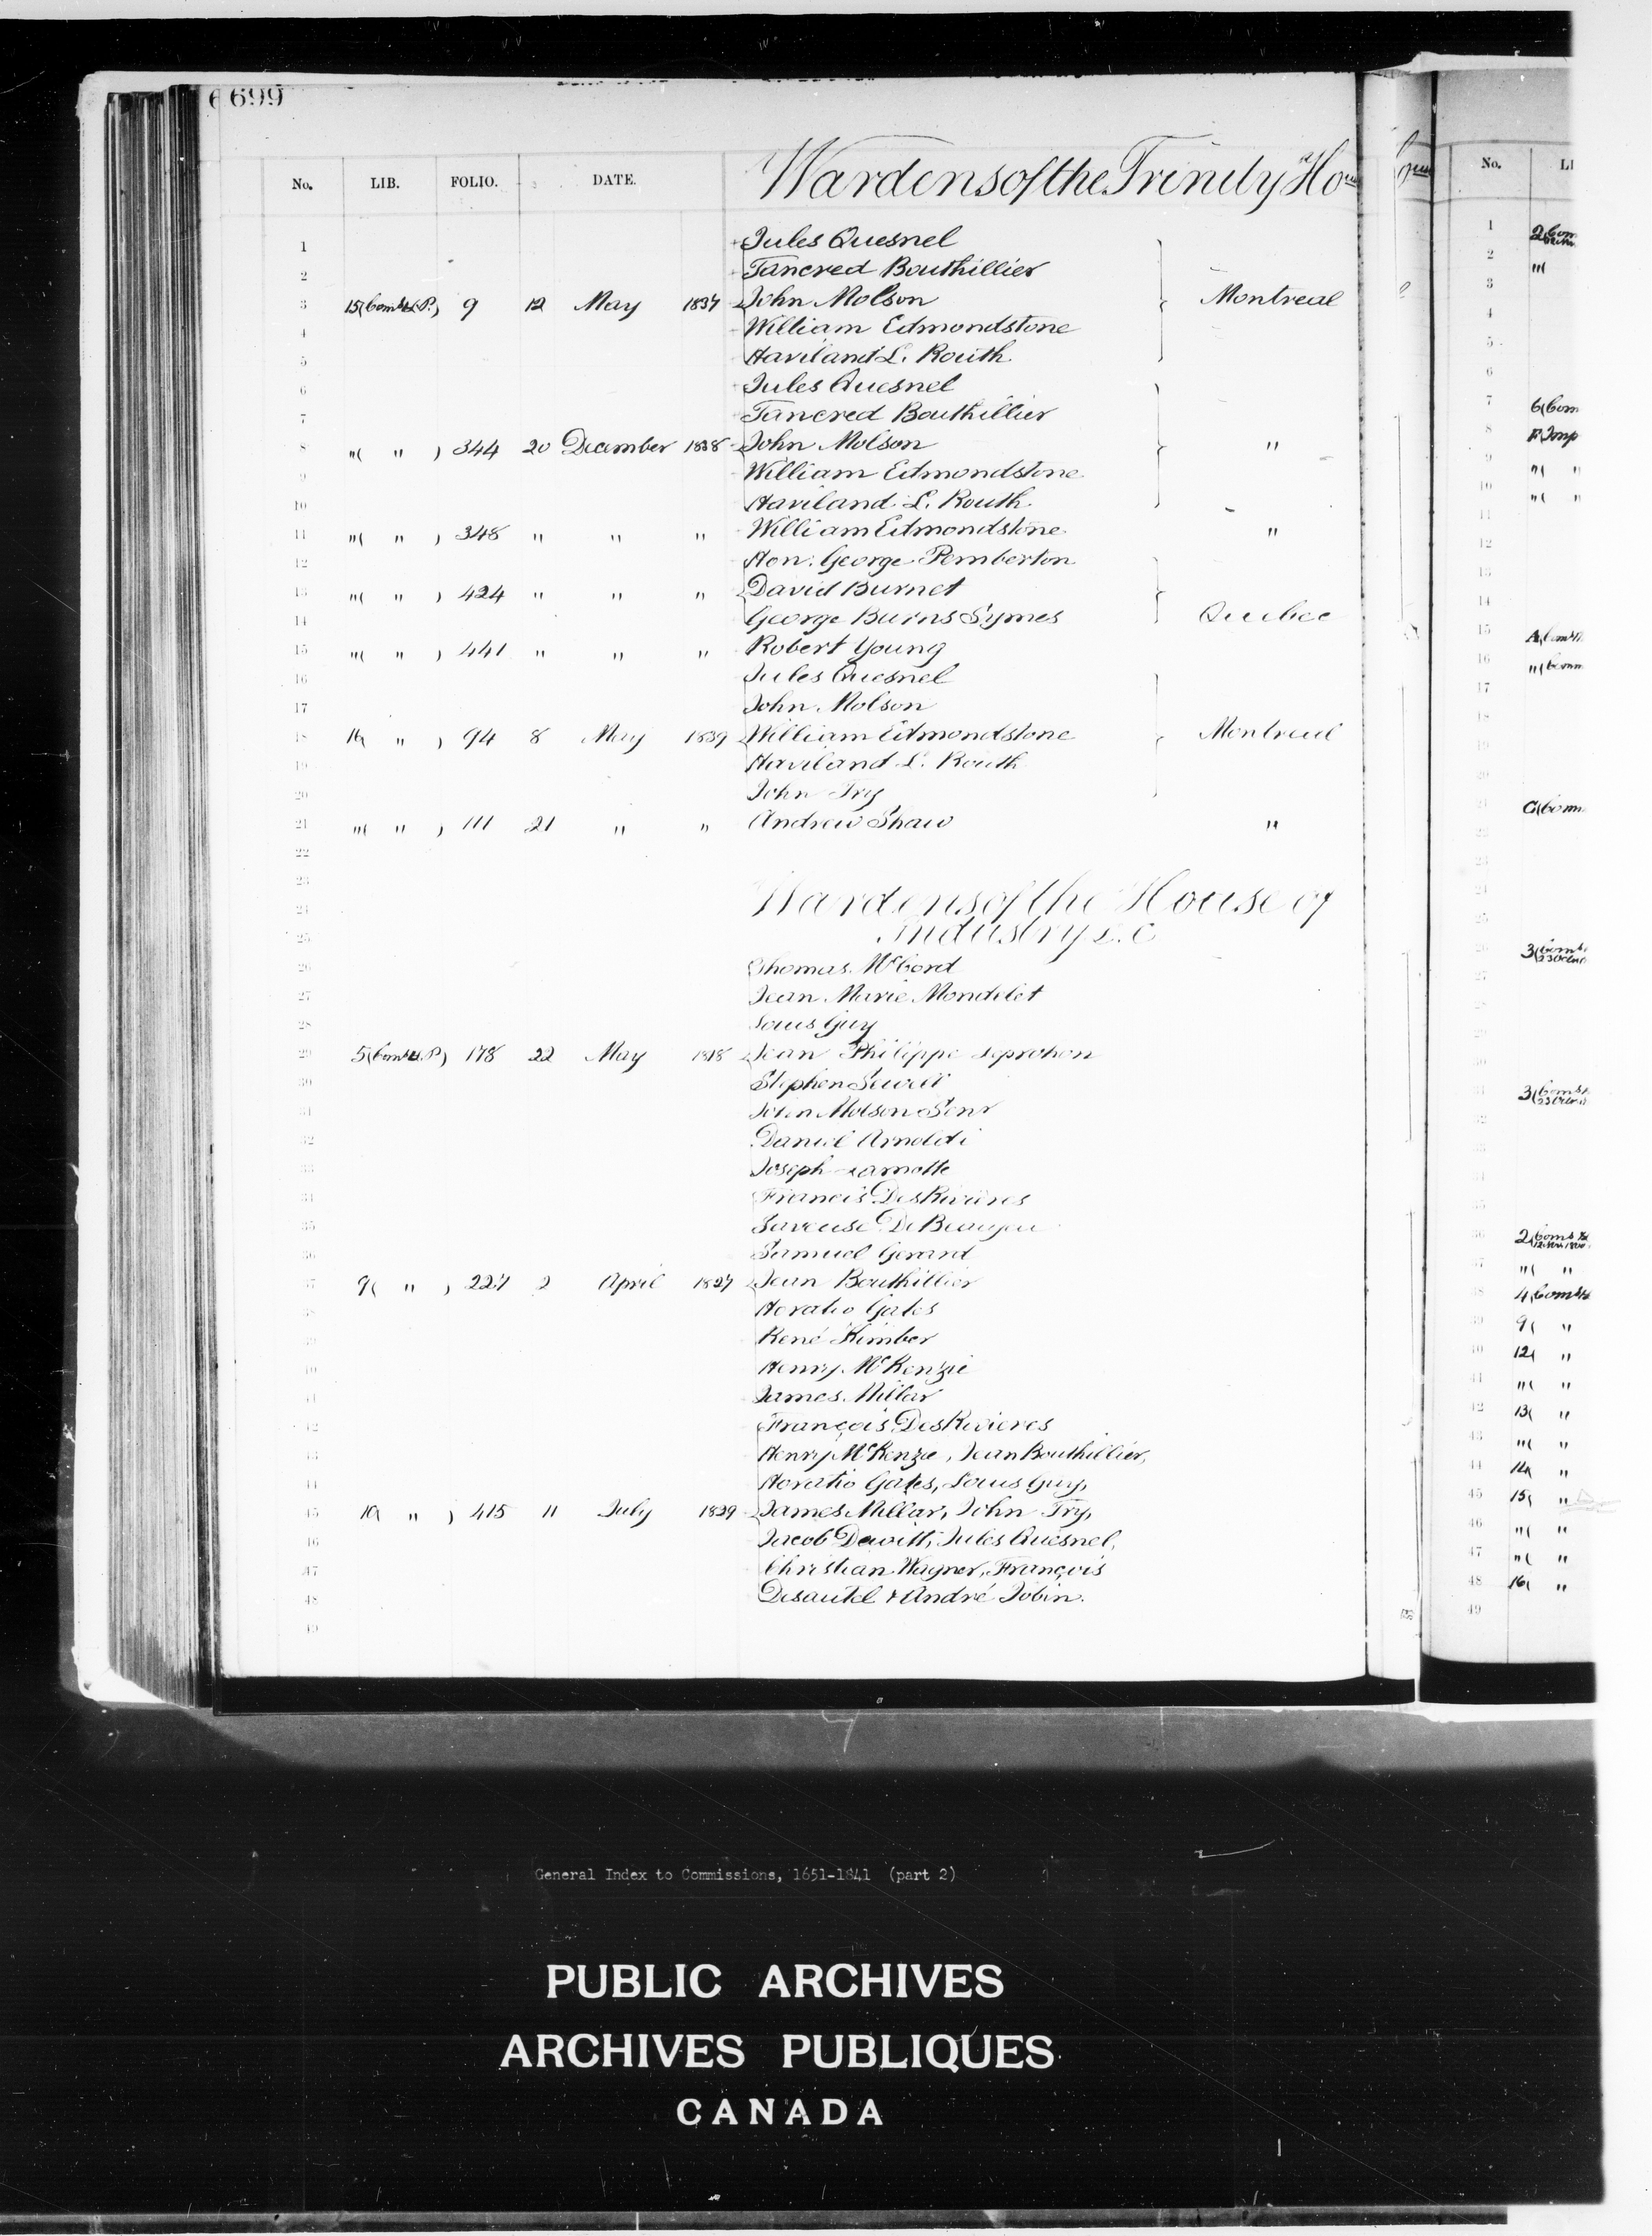 699
No. LIB. FOLIO. DATE. Wardens of the Trinity Ho
1 Jules Quesnel
2 Tancred Bouthillier
3 15(Comns L.P.) 9 12 May 1837 John Molson Montreal
4 William Edmondstone
5 Haviland L. Routh
6 Jules Quesnel
7 Tancred Bouthillier
8 "( " ) 344 20 December 1838 John Molson "
9 William Edmondstone
10 Haviland L. Routh
11 "( " ) 348 " " " William Edmondstone "
12 Hon. George Pemberton
13 "( " ) 424 " " " David Burnet
14 George Burns Symes Quebec
15 "( " ) 441 " " " Robert Young
16 Jules Quesnel
17 John Molson
18 16( " ) 94 8 May 1839 William Edmondstone Montreal
19 Haviland L. Routh
20 John Try
21 "( " ) 111 21 " " Andrew Shaw "
22
23
24 Wardens of the House of
25 Industry L.C
26 Thomas McCord
27 Jean Marie Mondelet
28 Louis Guy
29 5(Comns L.P) 178 22 May 1818 Jean Philippe Leprohon
30 Stephen Sewell
31 John Molson Senr
32 Daniel Arnoldi
33 Joseph Lamotte
34 Francis DesRivières
35 Saveuse De Beaujeu
36 Samuel Gerard
37 9( " ) 227 2 April 1827 Jean Bouthillier
38 Horatio Gates
39 René Kimber
40 Henry McKenzie
41 James Millar
42 François DesRivieres
43 Henry McKenzie, Jean Bouthillier,
44 Horatio Gates, Louis Guy,
45 10( " ) 415 11 July 1829 James Millar, John Try,
46 Jacob Dewitt, Jules Quesnel,
47 Christian Wagner, François
48 Desautel & André Jobin.
49
No. LI
1 2(Com
2 "(
3
4
5
6
7 6(Com
8 F(Imp
9 "( "
10 "( "
11
12
13
14
15
16
17
18
19
20
21 C(Comn
22
23
24
25
26
27
28
29
30
31
32
33
34
35
36
37 "( "
38 4(Comns
39 9( "
40 12( "
41 "( "
42 13( "
43 "( "
44 14( "
45 15( "
46 "( "
47 "( "
48 16( "
49
General Index to Commissions, 1651-1841 (part 2)
PUBLIC ARCHIVES
ARCHIVES PUBLIQUES
CANADA